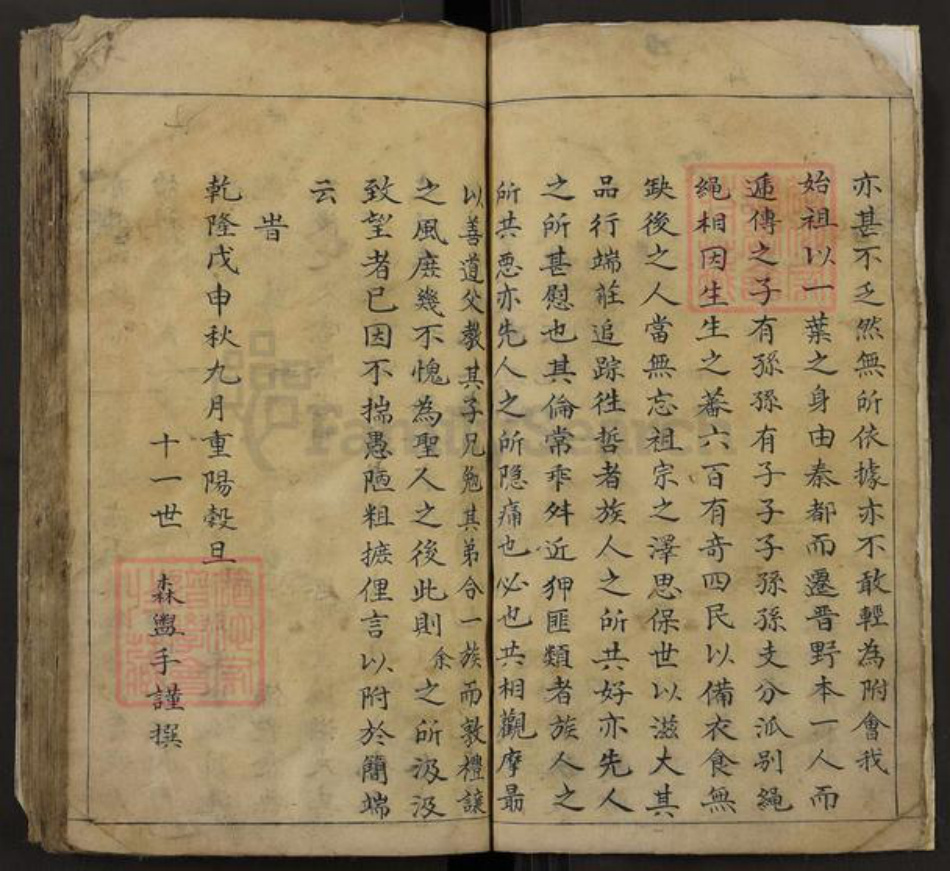 亦甚不乏然無所依據亦不敢輕為附會我
始祖以一葉之身由秦都而遷晋野本一人而
逓傳之子有孫孫有子子子孫孫支分派別繩
繩相因生生之蕃六百有奇四民以備衣食無
缺後之人當無忘祖宗之澤思保世以滋大其
品行端莊追踪徃哲者族人之所共好亦先人
之所甚慰也其倫常乖舛近狎匪類者族人之
所共惡亦先人之所隐痛也必也共相觀摩勗
以善道父教其子兄勉其弟合一族而敦禮讓
之風庻幾不愧為聖人之後此則余之所汲汲
致望者已因不揣愚陋粗摭俚言以附於簡端
云
旹
乾隆戊申秋九月重陽穀旦
十一世
森盥手謹撰
FamilySearch